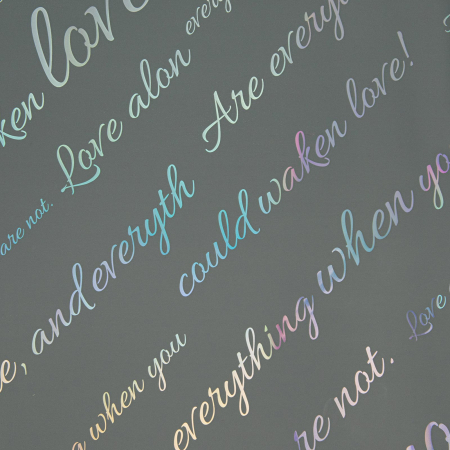 love
every
ken
Love alon
Are every
are not.
could waken love!
, and everyth
everything when yo
g when you
Love
re not.